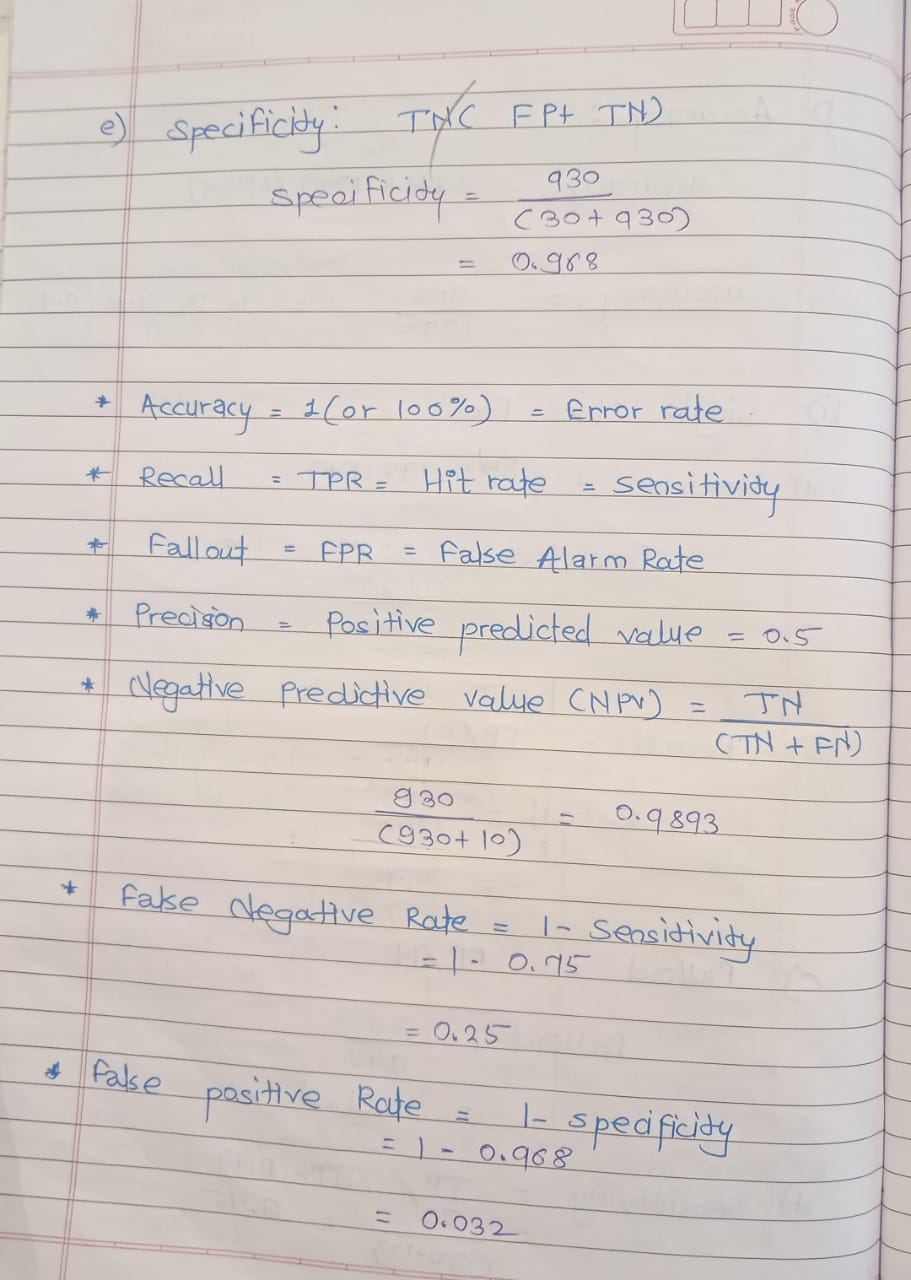 e) Specificity: TN/( FP+ TN)
Specificity = 930/(30+930)
= 0.968
* Accuracy = 1(or 100%) = Error rate
* Recall = TPR = Hit rate = Sensitivity
* Fallout = FPR = False Alarm Rate
* Precision = Positive predicted value = 0.5
* Negative Predictive value (NPV) = TN/(TN + FN)
930/(930+10) = 0.9893
* False Negative Rate = 1- Sensitivity
= 1 - 0.75
= 0.25
* False positive Rate = 1- specificity
= 1 - 0.968
= 0.032